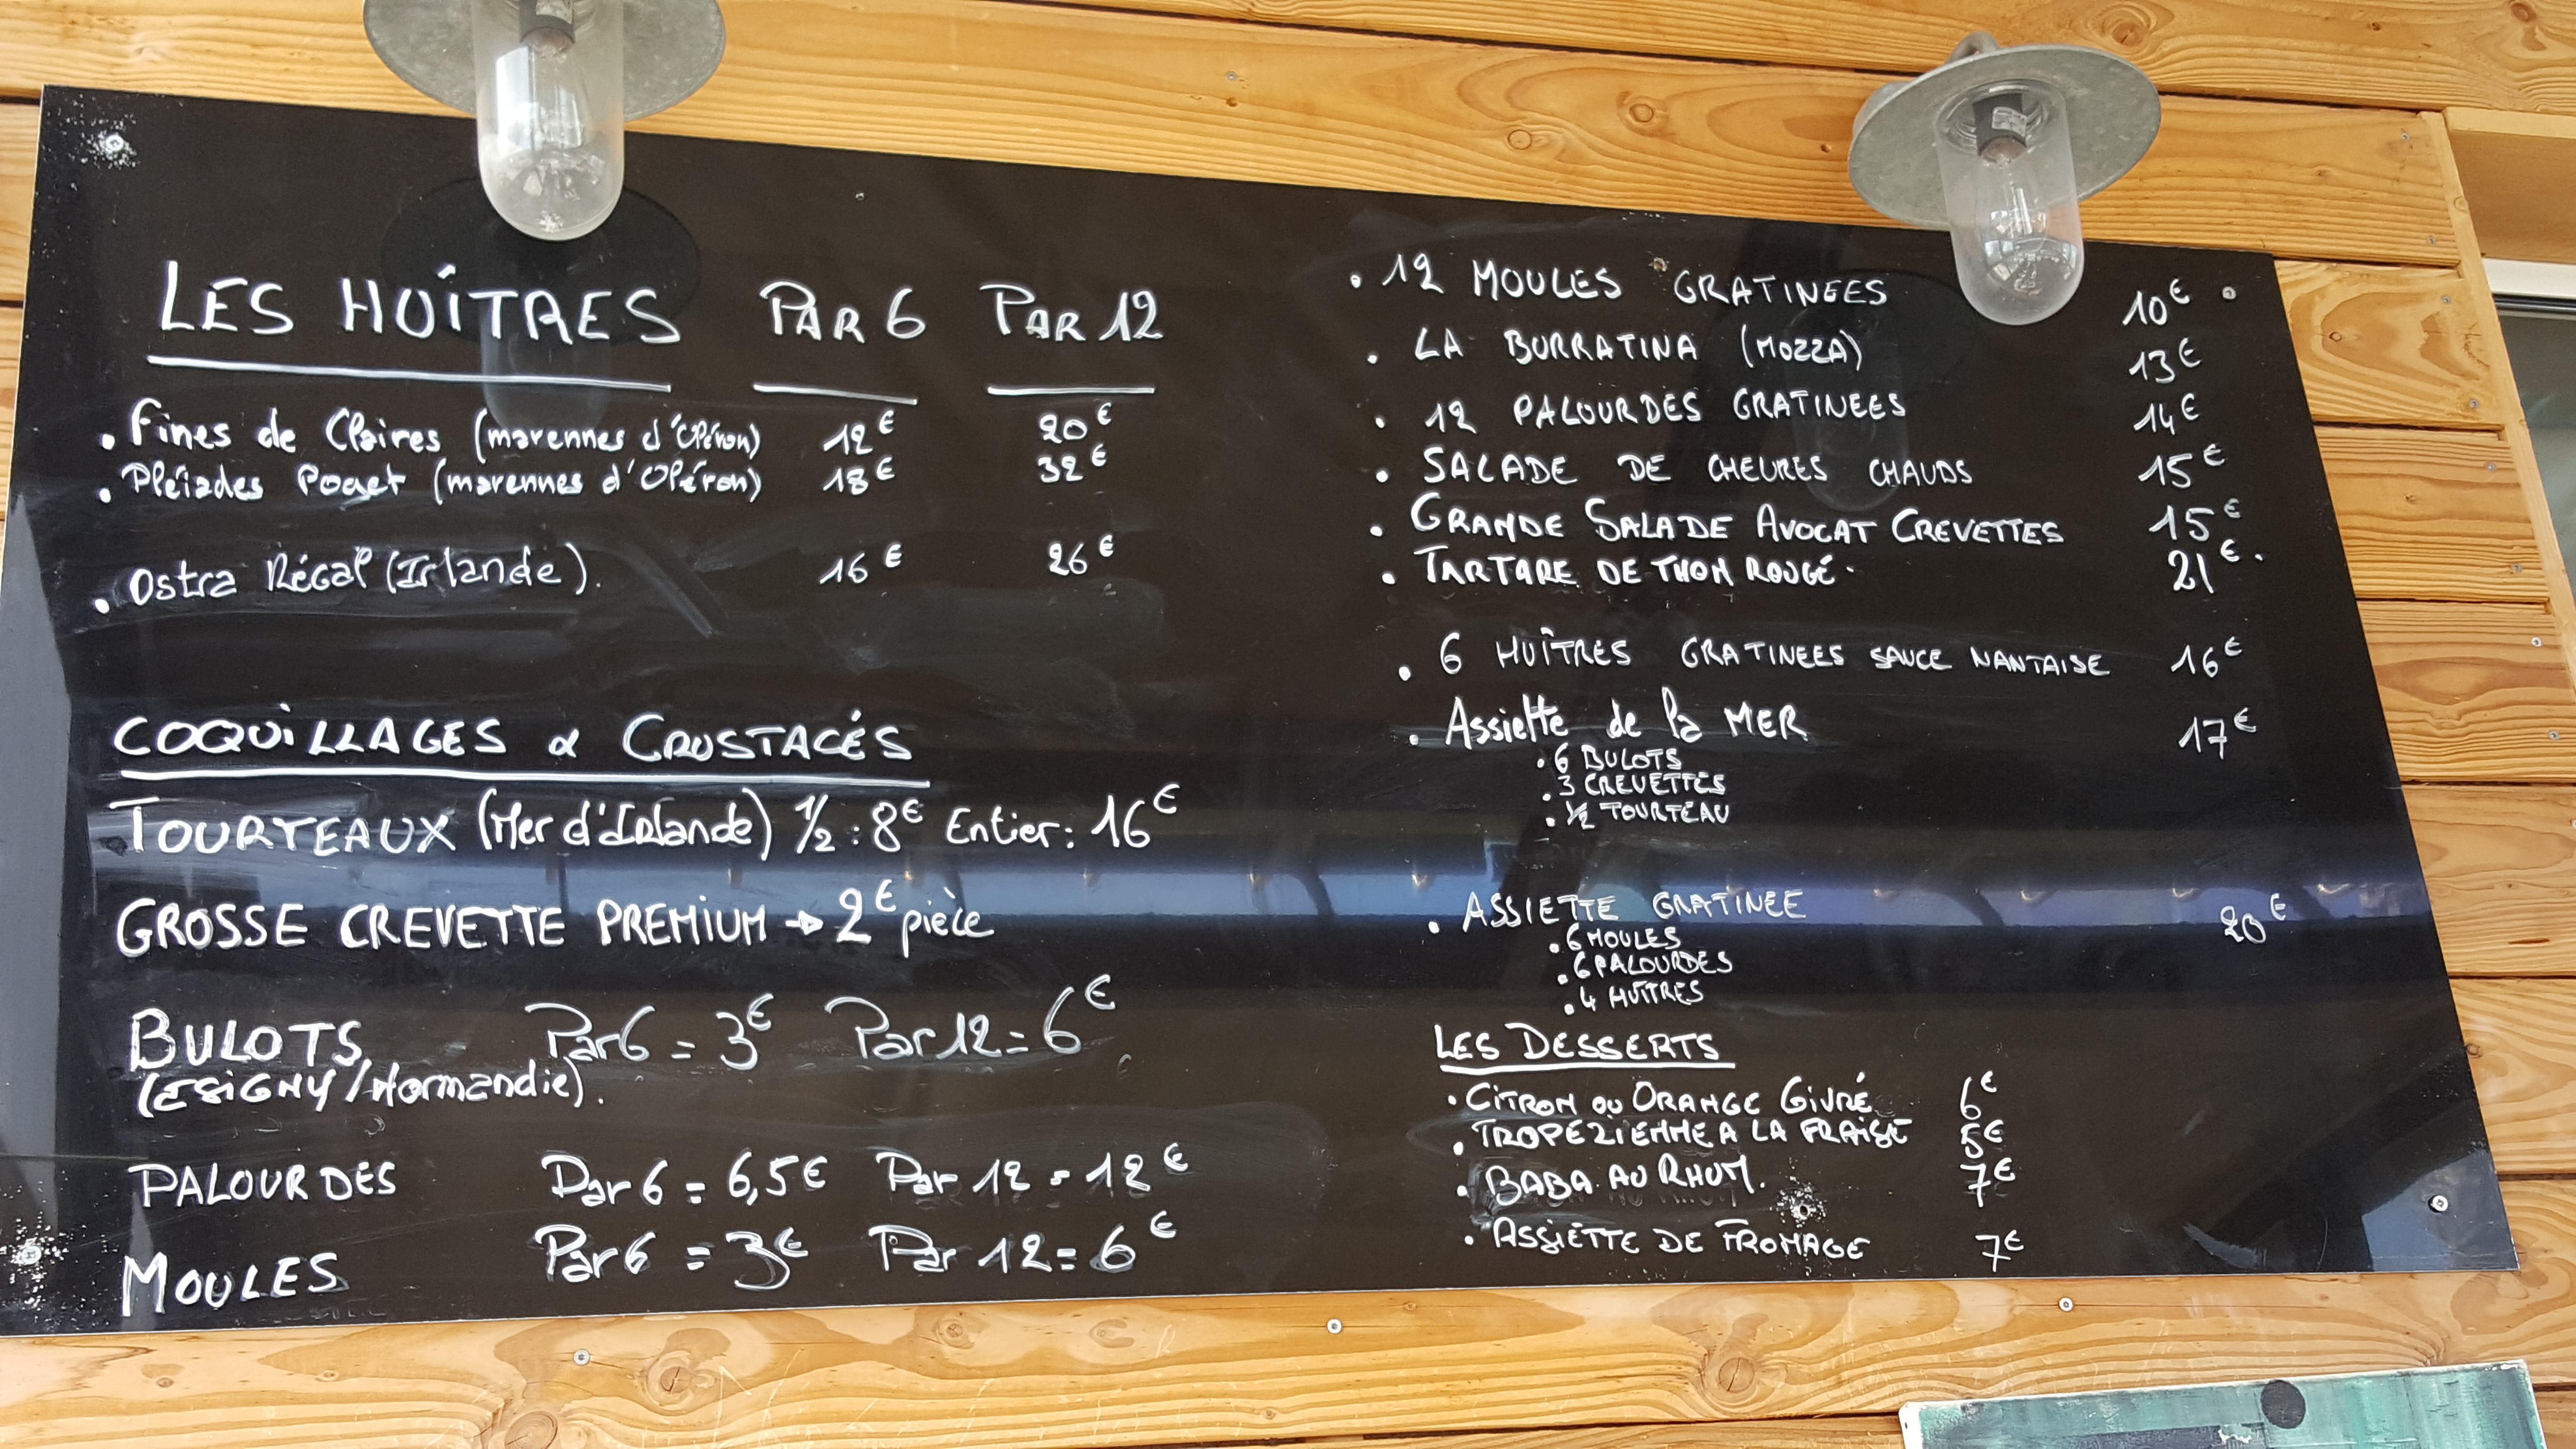 LES HUÎTRES PAR 6 PAR 12
• Fines de Claires (marennes d'Oléron) 12€ 20€
• Pléiades Poget (marennes d'Oléron) 18€ 32€
• Ostra Régal (Irlande). 16€ 26€
COQUILLAGES & CRUSTACÉS
TOURTEAUX (Mer d'Irlande) 1/2 : 8€ Entier : 16€
GROSSE CREVETTE PREMIUM → 2€ pièce
BULOTS Par 6 = 3€ Par 12 = 6€
(ESIGNY/Normandie).
PALOURDES Par 6 = 6,5€ Par 12 = 12€
MOULES Par 6 = 3€ Par 12 = 6€
• 12 MOULES GRATINEES 10€
• LA BURRATINA (MOZZA) 13€
• 12 PALOURDES GRATINEES 14€
• SALADE DE CHEVRES CHAUDS 15€
• GRANDE SALADE AVOCAT CREVETTES 15€
• TARTARE DE THON ROUGE. 21€.
• 6 HUÎTRES GRATINEES SAUCE NANTAISE 16€
• Assiette de la MER 17€
• 6 BULOTS
• 3 CREVETTES
• 1/2 TOURTEAU
• ASSIETTE GRATINEE 20€
• 6 MOULES
• 6 PALOURDES
• 4 HUÎTRES
LES DESSERTS
• CITRON OU ORANGE GIVRÉ 6€
• TROPEZIENNE A LA FRAISE 5€
• BABA AU RHUM. 7€
• ASSIETTE DE FROMAGE 7€